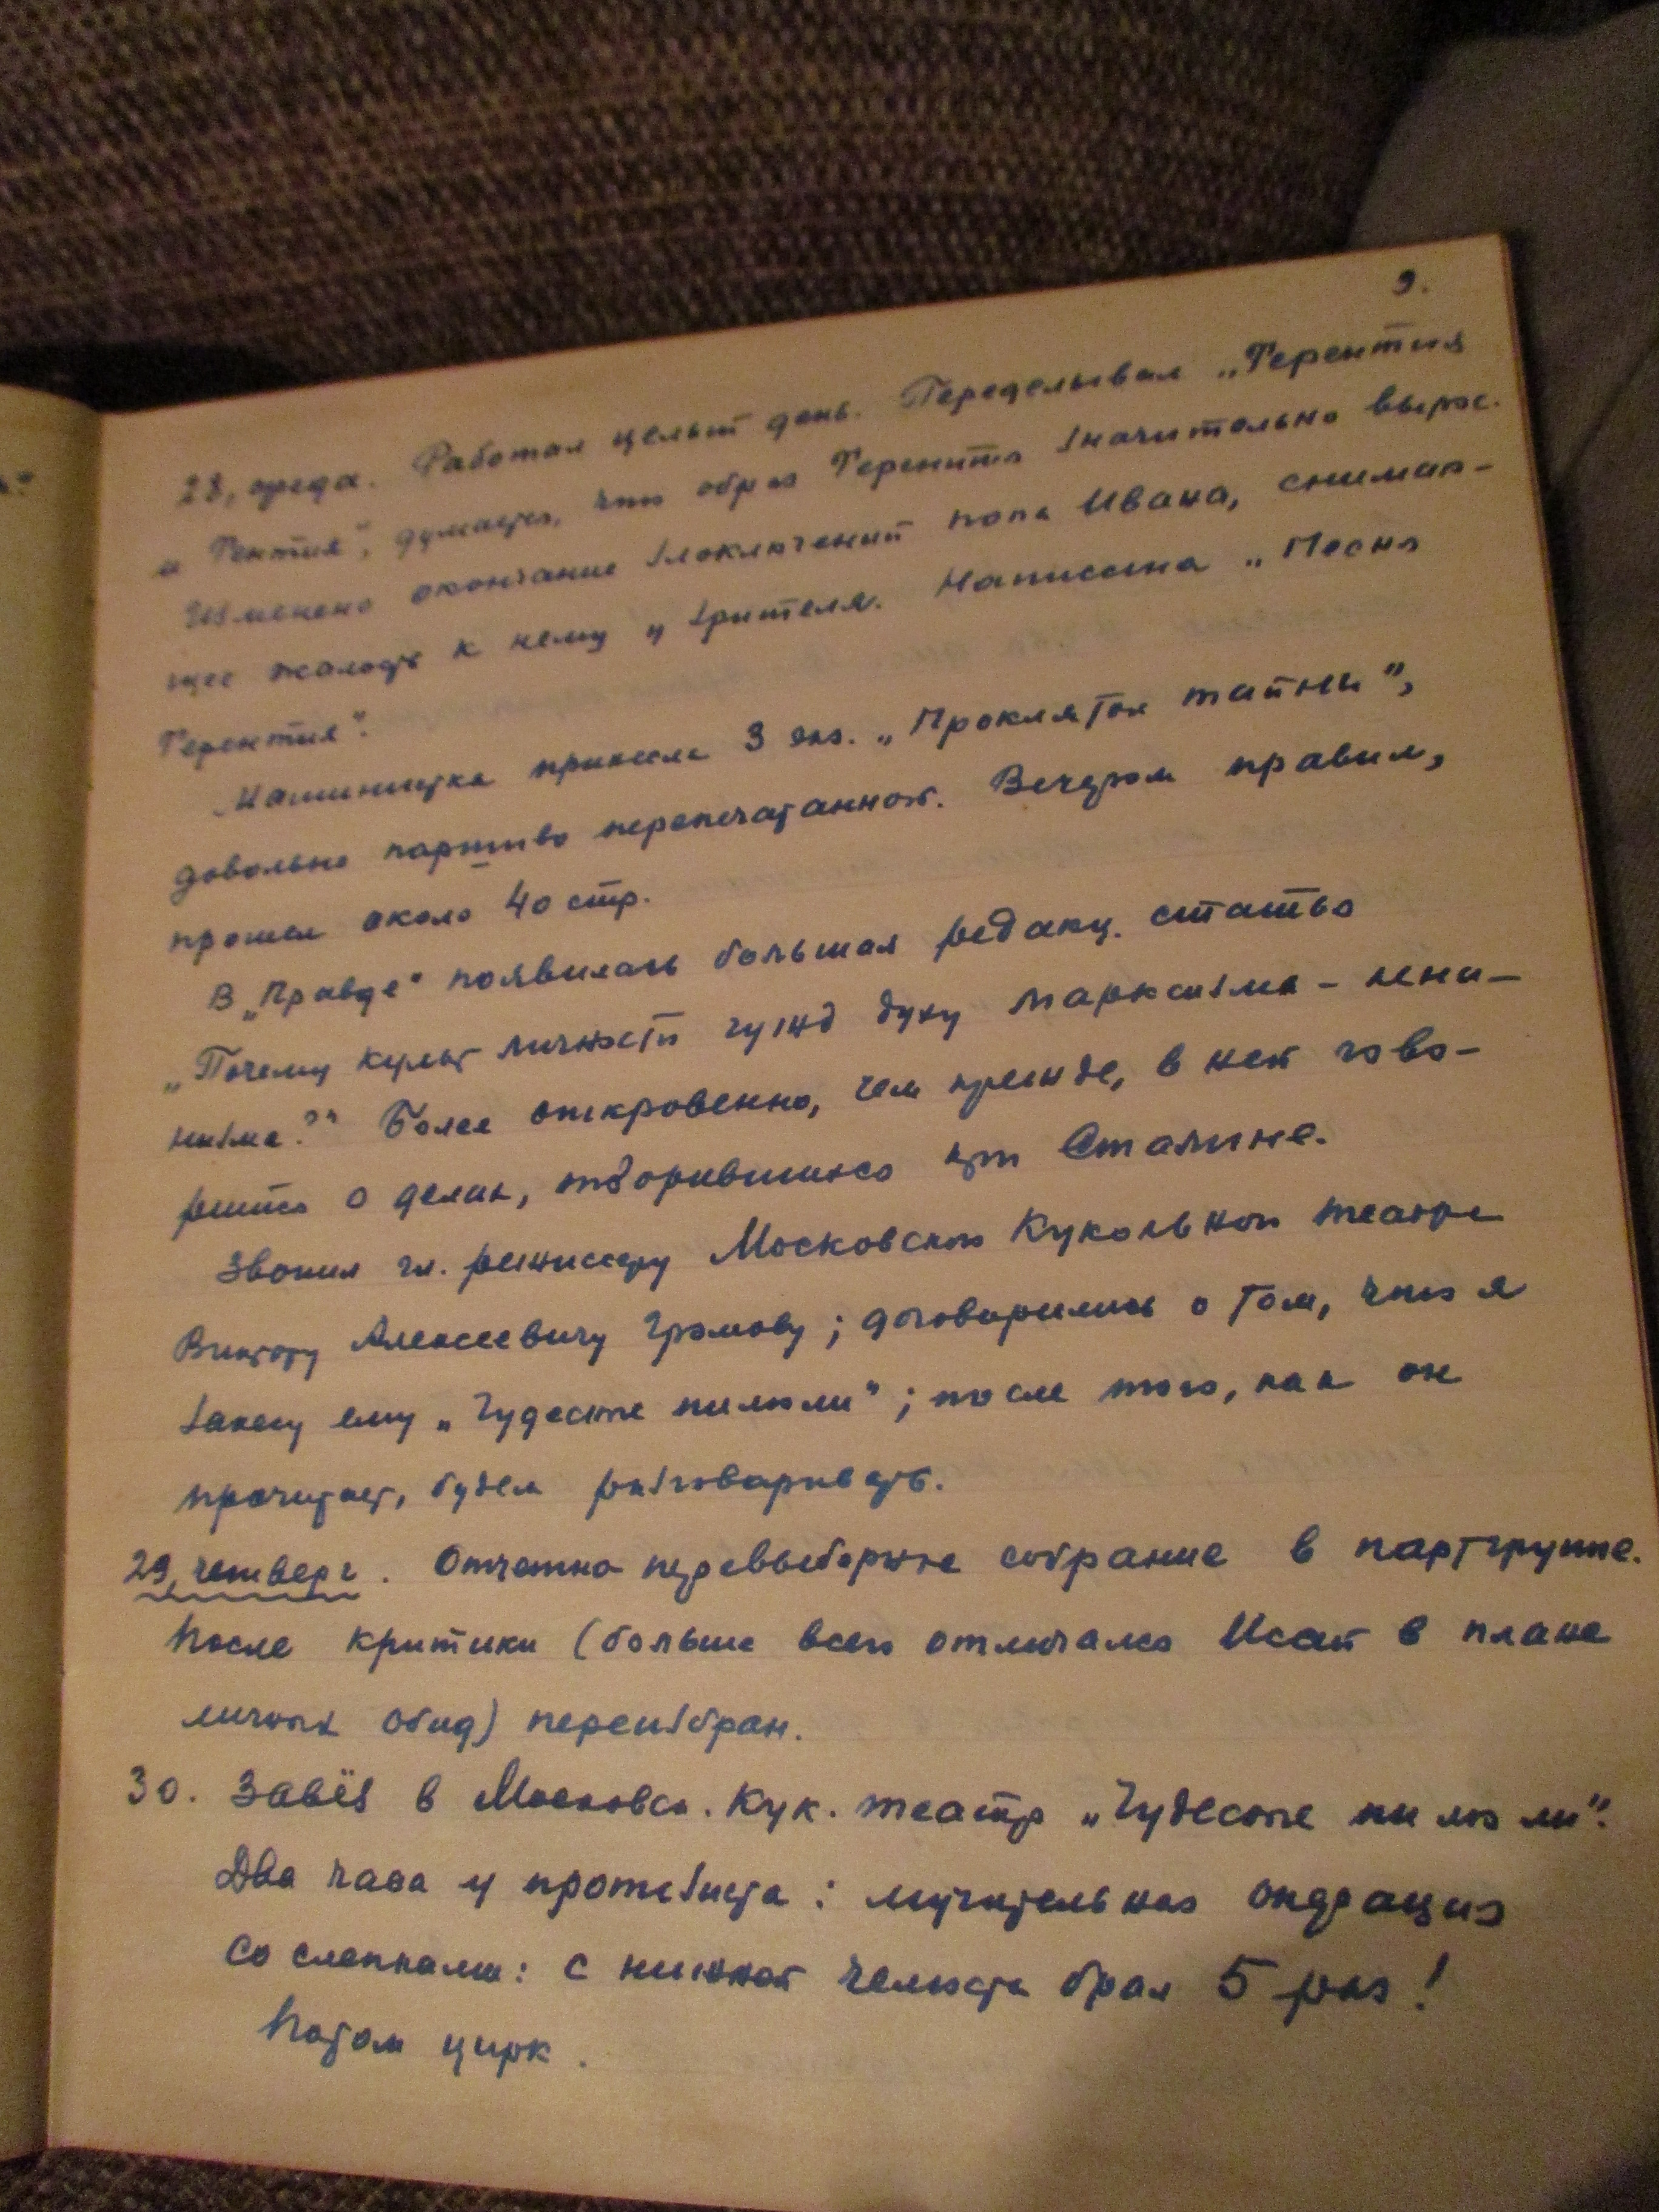 9.
28, среда. Работал целый день. Переделывал „Терентия
и Рентия", думается, что образ Терентия значительно вырос.
Изменено окончание злоключений попа Ивана, снимаю-
щее жалость к нему у зрителя. Написана „Песня
Терентия".
Машинистка принесла 3 экз. „Проклятой тайны",
довольно паршиво перепечатанной. Вечером правил,
прошел около 40 стр.
В „Правде" появилась большая редакц. статья
„Почему культ личности чужд духу марксизма-лени-
низма?" Более откровенно, чем прежде, в ней гово-
рится о делах, творившихся при Сталине.
Звонил гл. режиссеру Московского Кукольного театра
Виктору Алексеевичу Громову; договорились о том, что я
занесу ему „Чудесные пилюли"; после того, как он
прочитает, будем разговаривать.
29, четверг. Отчетно перевыборное собрание в партгруппе.
После критики (больше всего отличался Исай в плане
личных обид) переизбран.
30. Завёз в Московск. Кук. театр „Чудесные пилюли".
Два часа у протезиста: мучительная операция
со слепками: с нижней челюсти брал 5 раз!
Потом цирк.